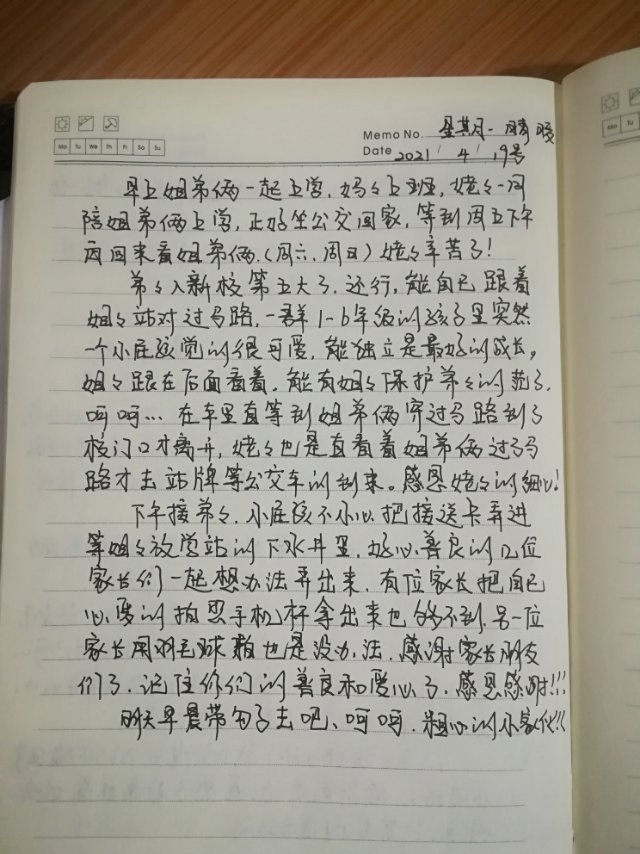 Memo No. 星期一 晴 暖
Mo Tu We Th Fr Sa Su
Date 2021/4/19号
早上姐弟俩一起上学，妈々上班，姥々一同
陪姐弟俩上学，正好坐公交回家，等到周五下午
再回来看姐弟俩.（周六、周日）姥々辛苦了！
弟々入新校第五天了.还行，能自己跟着
姐々站对过马路，一群1-6年级的孩子里突然
一个小屁孩觉的很可爱，能独立是最好的成长，
姐々跟在后面看着，能有姐々保护弟々的范了，
呵呵… 在车里直等到姐弟俩穿过马路到了
校门口才离开，姥々也是直看着姐弟俩过了马
路才去站牌等公交车的到来。感恩姥々的细心！
下午接弟々，小屁孩不小心把接送卡弄进
等姐々放学站的下水井里，好心善良的几位
家长们一起想办法弄出来，有位家长把自己
心爱的拍照手机杆拿出来也够不到，另一位
家长用羽毛球拍也是没办法，感谢家长朋友
们了，记住你们的善良和爱心了，感恩感谢!!!
明天早晨带勾子去吧、呵呵，粗心的小家伙!!